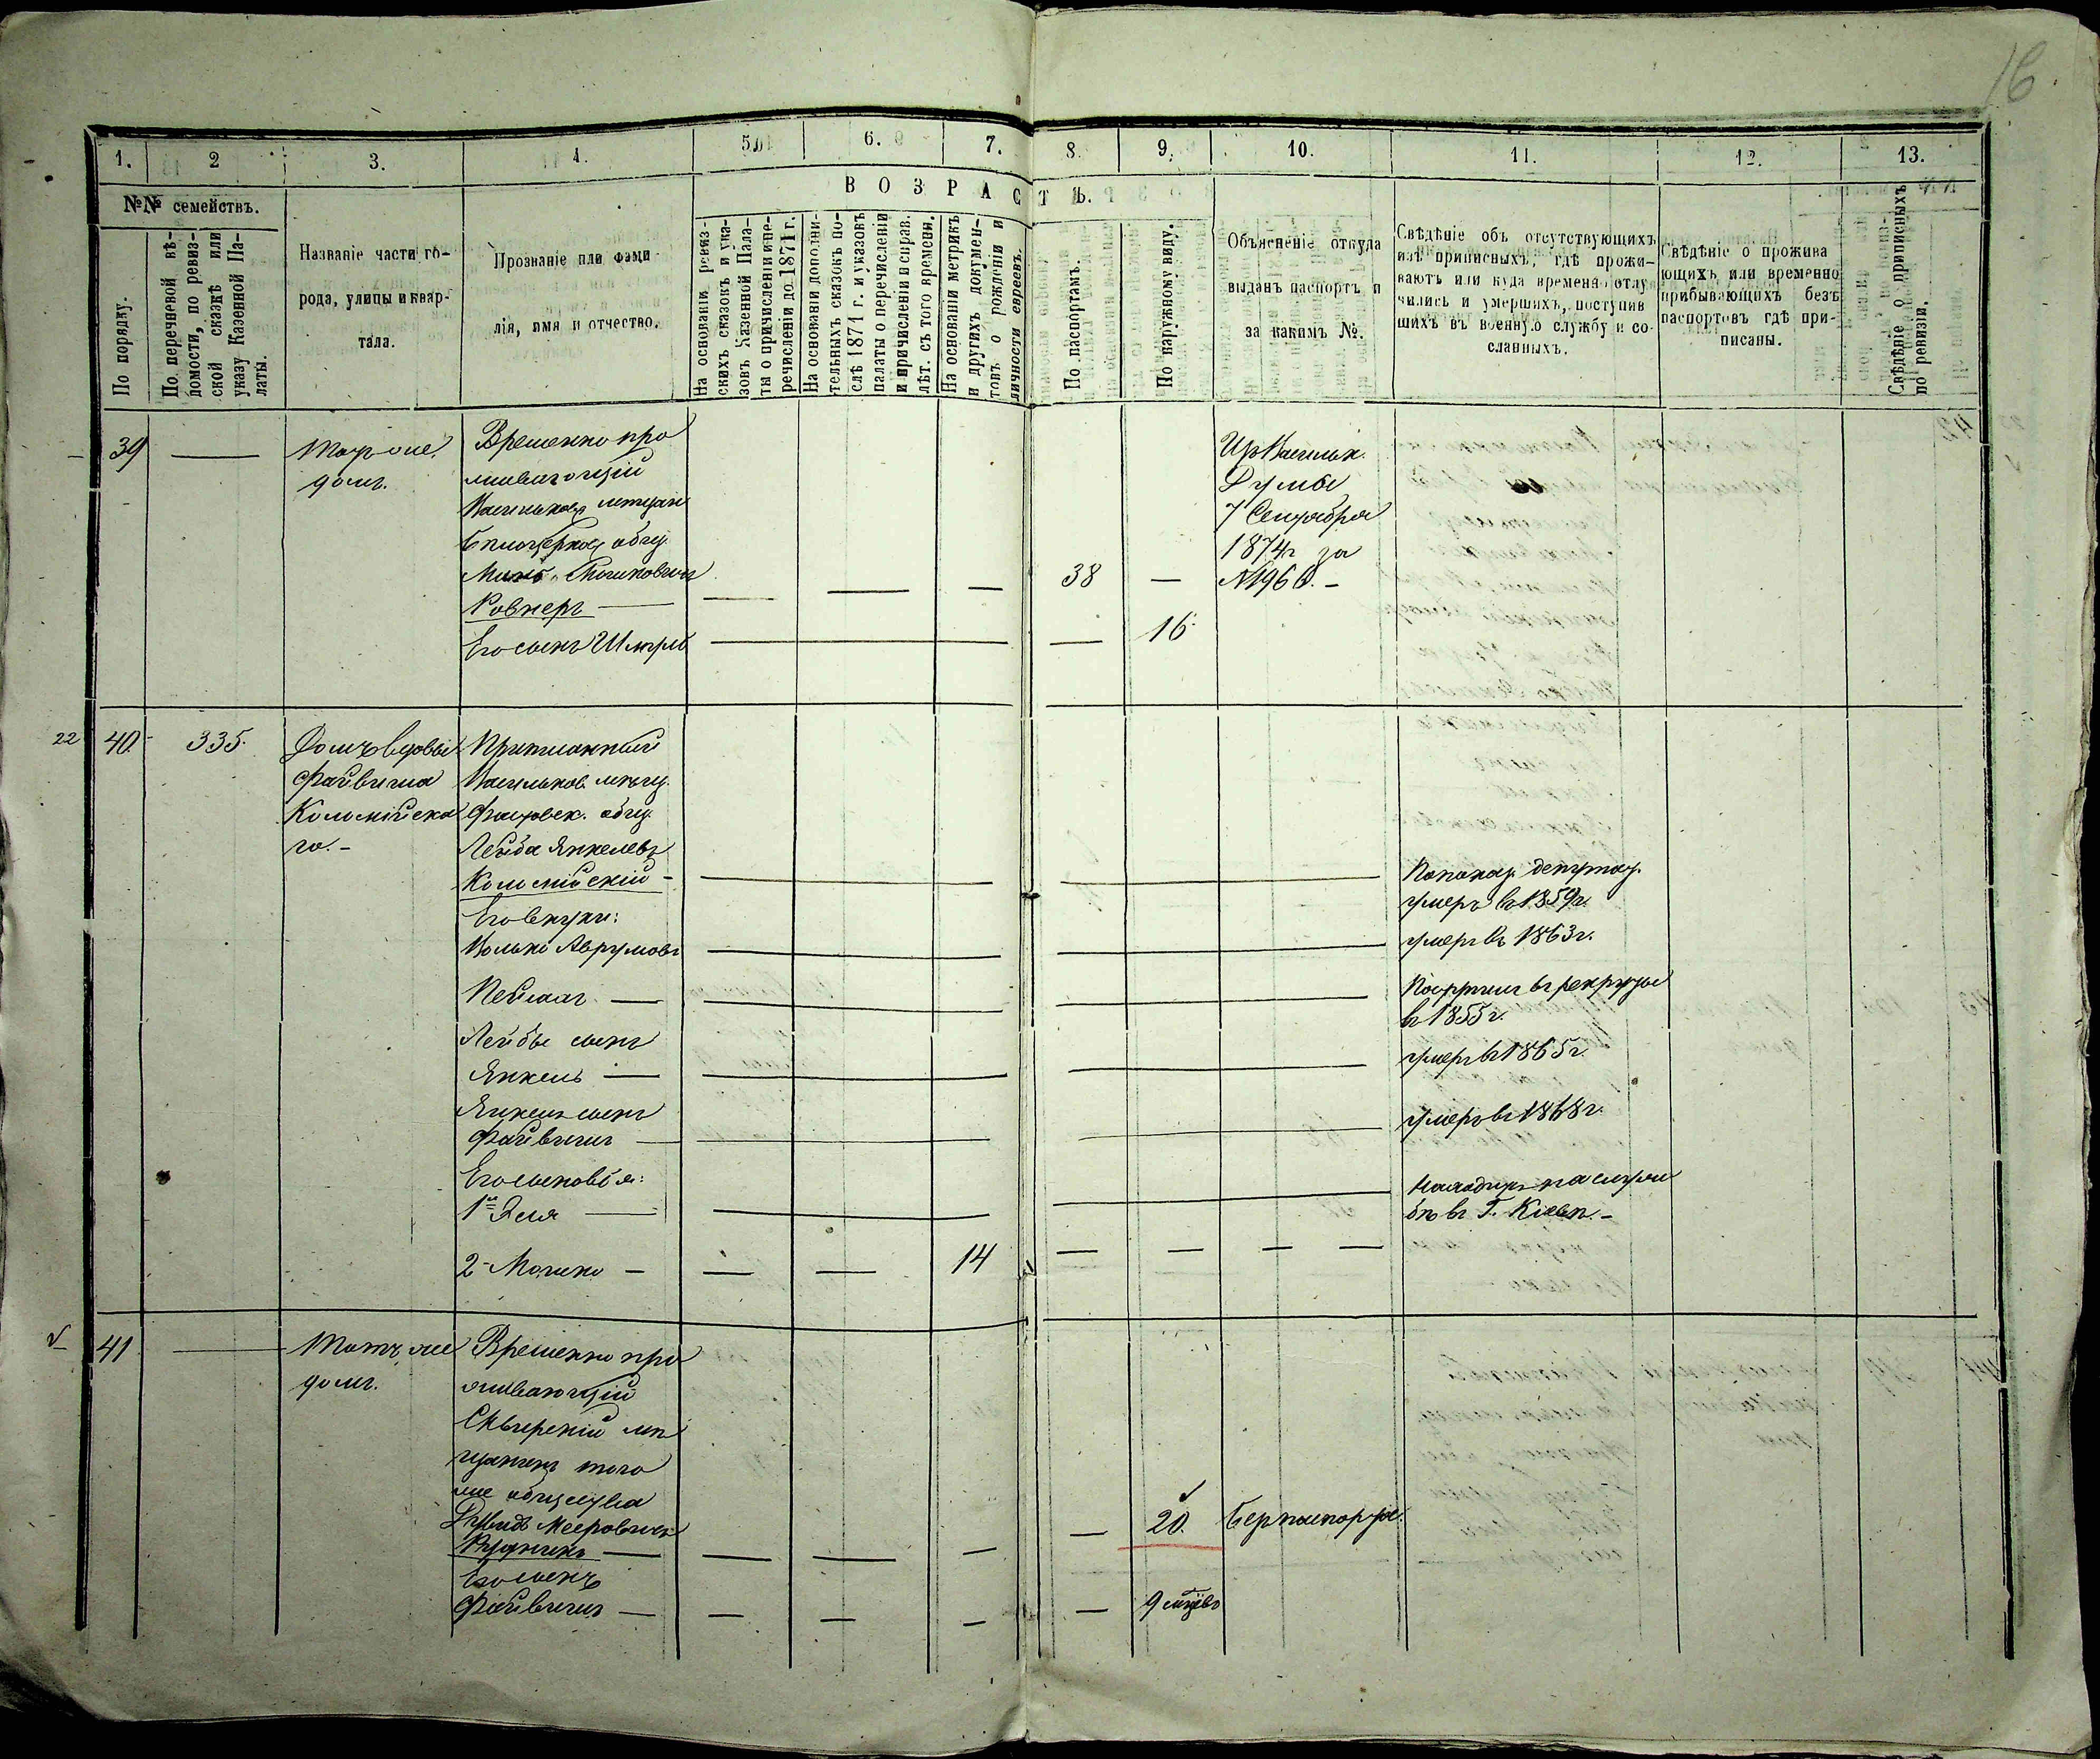 16
1. 2 3. 4. 5. 6. 7. 8. 9. 10. 11. 12. 13.
№№ семействъ.
ВОЗРАСТЪ.
По порядку.
По перечневой вѣ-
домости, по ревиз-
ской сказкѣ или
указу Казенной Па-
латы.
Названіе части го-
рода, улицы и квар-
тала.
Прозваніе или фами
лія, имя и отчество.
На основаніи ревиз-
скихъ сказокъ и ука-
зовъ Казенной Пала-
ты о причисленіи и пе-
речисленіи до 1871 г.
На основаніи дополни-
тельныхъ сказокъ по-
слѣ 1871 г. и указовъ
палаты о перечисленіи
и причисленіи и справ.
лѣт. съ того времени.
На основаніи метрикъ
и другихъ докумен-
товъ о рожденіи и
личности евреевъ.
По паспортамъ.
По наружному виду.
Объясненіе откуда
выданъ паспортъ и
за какимъ №.
Свѣдѣніе объ отсутствующихъ
изъ приписныхъ, гдѣ прожи-
ваютъ или куда временно отлу
чились и умершихъ, поступив
шихъ въ военную службу и со-
сланныхъ.
Свѣдѣніе о прожива
ющихъ или временно
прибывающихъ безъ
паспортовъ гдѣ при-
писаны.
Свѣдѣніе о приписныхъ
по ревизіи.
39
Тотъ же
домъ.
Временно про
живающій
Васильков. мещан
Бѣлоцерков. общ.
Мошковичъ
Ровнеръ
38
Из Васильк.
Думы
7 Сентября
1874 г за
№ 1966. -
Его сынъ Шмуль
16
22 40. 335.
Домъ вдовы
Файвиша
Коломійска
го. -
Приписанный
Васильков. мѣщ.
Фастовск. общ.
Лейба Янкелевъ
Коломійскій -
По показ. депутат.
умеръ въ 1859 г.
Его внуки:
Волько Аврумовъ
умеръ въ 1863 г.
Пейсахъ
Поступил въ рекруты
въ 1855 г.
Лейбы сынъ
Янкель
умеръ въ 1865 г.
Янкеля сынъ
Файвишъ
умеръ въ 1868 г.
Его сыновья:
1й Эля
находит. на служ
бѣ въ Г. Киевѣ. -
2 Мошко - 14
41
Тотъ же
домъ.
Временно про
живающій
Сквирскій мѣ
щанинъ того
же общества
Давидъ Мееровичъ
20. Без паспорта.
Его сынъ
Файвишъ
9 мѣсяцевъ